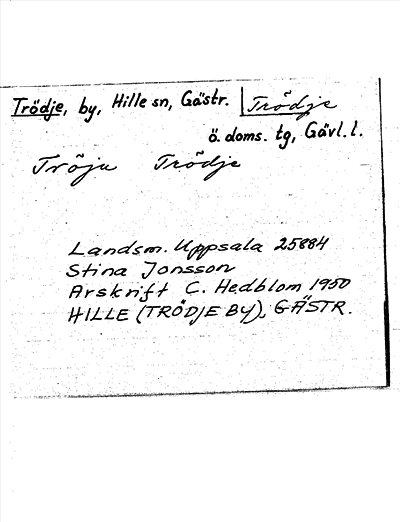 Trödje, by, Hille sn, Gästr. Trödje
ö. doms. tg, Gävl. l.
Tröju Trödje
Landsm. Uppsala 25884
Stina Jonsson
Arskrift C. Hedblom 1950
HILLE (TRÖDJE BY), GÄSTR.